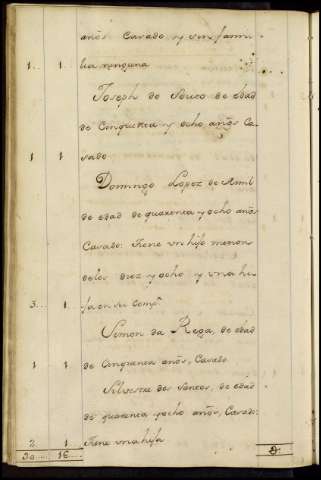 años Casado y sin fami-
1.. 1 lia ninguna
Joseph de Souto de edad
de Cinquenta y ocho años Ca-
1 1 sado
Domingo Lopez de
de edad de quarenta y ocho años
Casado: Tiene un hijo menor
delos diez y ocho y una hi-
3... 1. ja en su Comp.ª
Simon da Rega, de edad
1 1 de Cinquenta años, Casado
Silvestre dos Santos, de edad
de quarenta y ocho años, Casado:
2. 1 Tiene una hija
30.... 16....